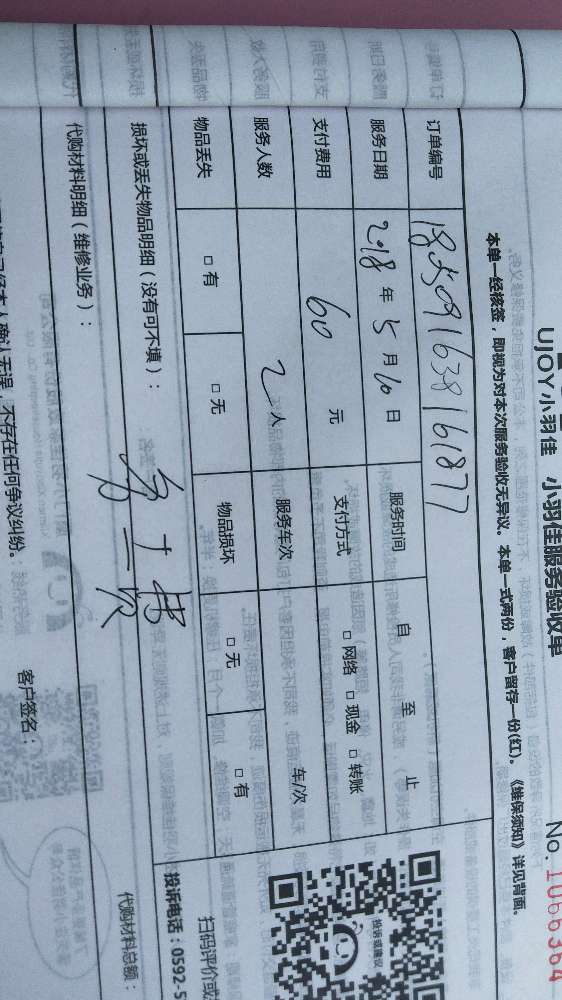 UJOY小羽佳 小羽佳服务验收单
No. 1066364
本单一经核签，即视为对本次服务验收无异议。本单一式两份，客户留存一份(红)。《维保须知》详见背面。
订单编号
服务日期 2018年5月10日 服务时间 自 至 止
支付费用 60 元 支付方式 □网络 □现金 □转账
服务人数 2人 服务车次 车/次
物品丢失 □有 □无 物品损坏 □无 □有
损坏或丢失物品明细（没有可不填）：
代购材料明细（维修业务）：
代购材料总额：
本人确认无误，不存在任何争议纠纷。
客户签名：
投诉或建议
扫码评价或
投诉电话：0592-5